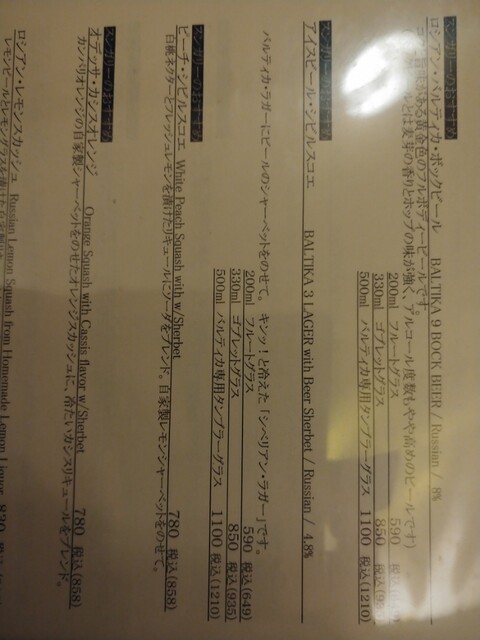 スンガリーのおすすめ
ロシアン・バルティカ・ボックビール BALTIKA 9 BOCK BEER / Russian / 8%
コク 黄金色のフルボディービールです。
大麦芽の香りとホップの味が強く、アルコール度数もやや高めのビールです)
200ml フルートグラス 590 税込
330ml ゴブレットグラス 850 税込
500ml バルティカ専用タンブラーグラス 1100 税込(1210)
スンガリーのおすすめ
アイスビール・シビルスコエ BALTIKA 3 LAGER with Beer Sherbet / Russian / 4.8%
バルティカ・ラガーにビールのシャーベットをのせて。キンッ!と冷えた「シベリアン・ラガー」です。
200ml フルートグラス 590 税込(649)
330ml ゴブレットグラス 850 税込(935)
500ml バルティカ専用タンブラーグラス 1100 税込(1210)
スンガリーのおすすめ
ピーチ・シビルスコエ White Peach Squash with w/Sherbet 780 税込(858)
白桃ネクターとフレッシュレモンを漬けたリキュールにソーダをブレンド。自家製レモンシャーベットをのせて。
スンガリーのおすすめ
オデッサ・カシスオレンジ Orange Squash with Cassis flavor w/Sherbet 780 税込(858)
カンパリオレンジの自家製シャーベットをのせたオレンジスカッシュに、冷たいカシスリキュールをブレンド。
ロシアン・レモンスカッシュ Russian Lemon Squash from Homemade Lemon Liquor